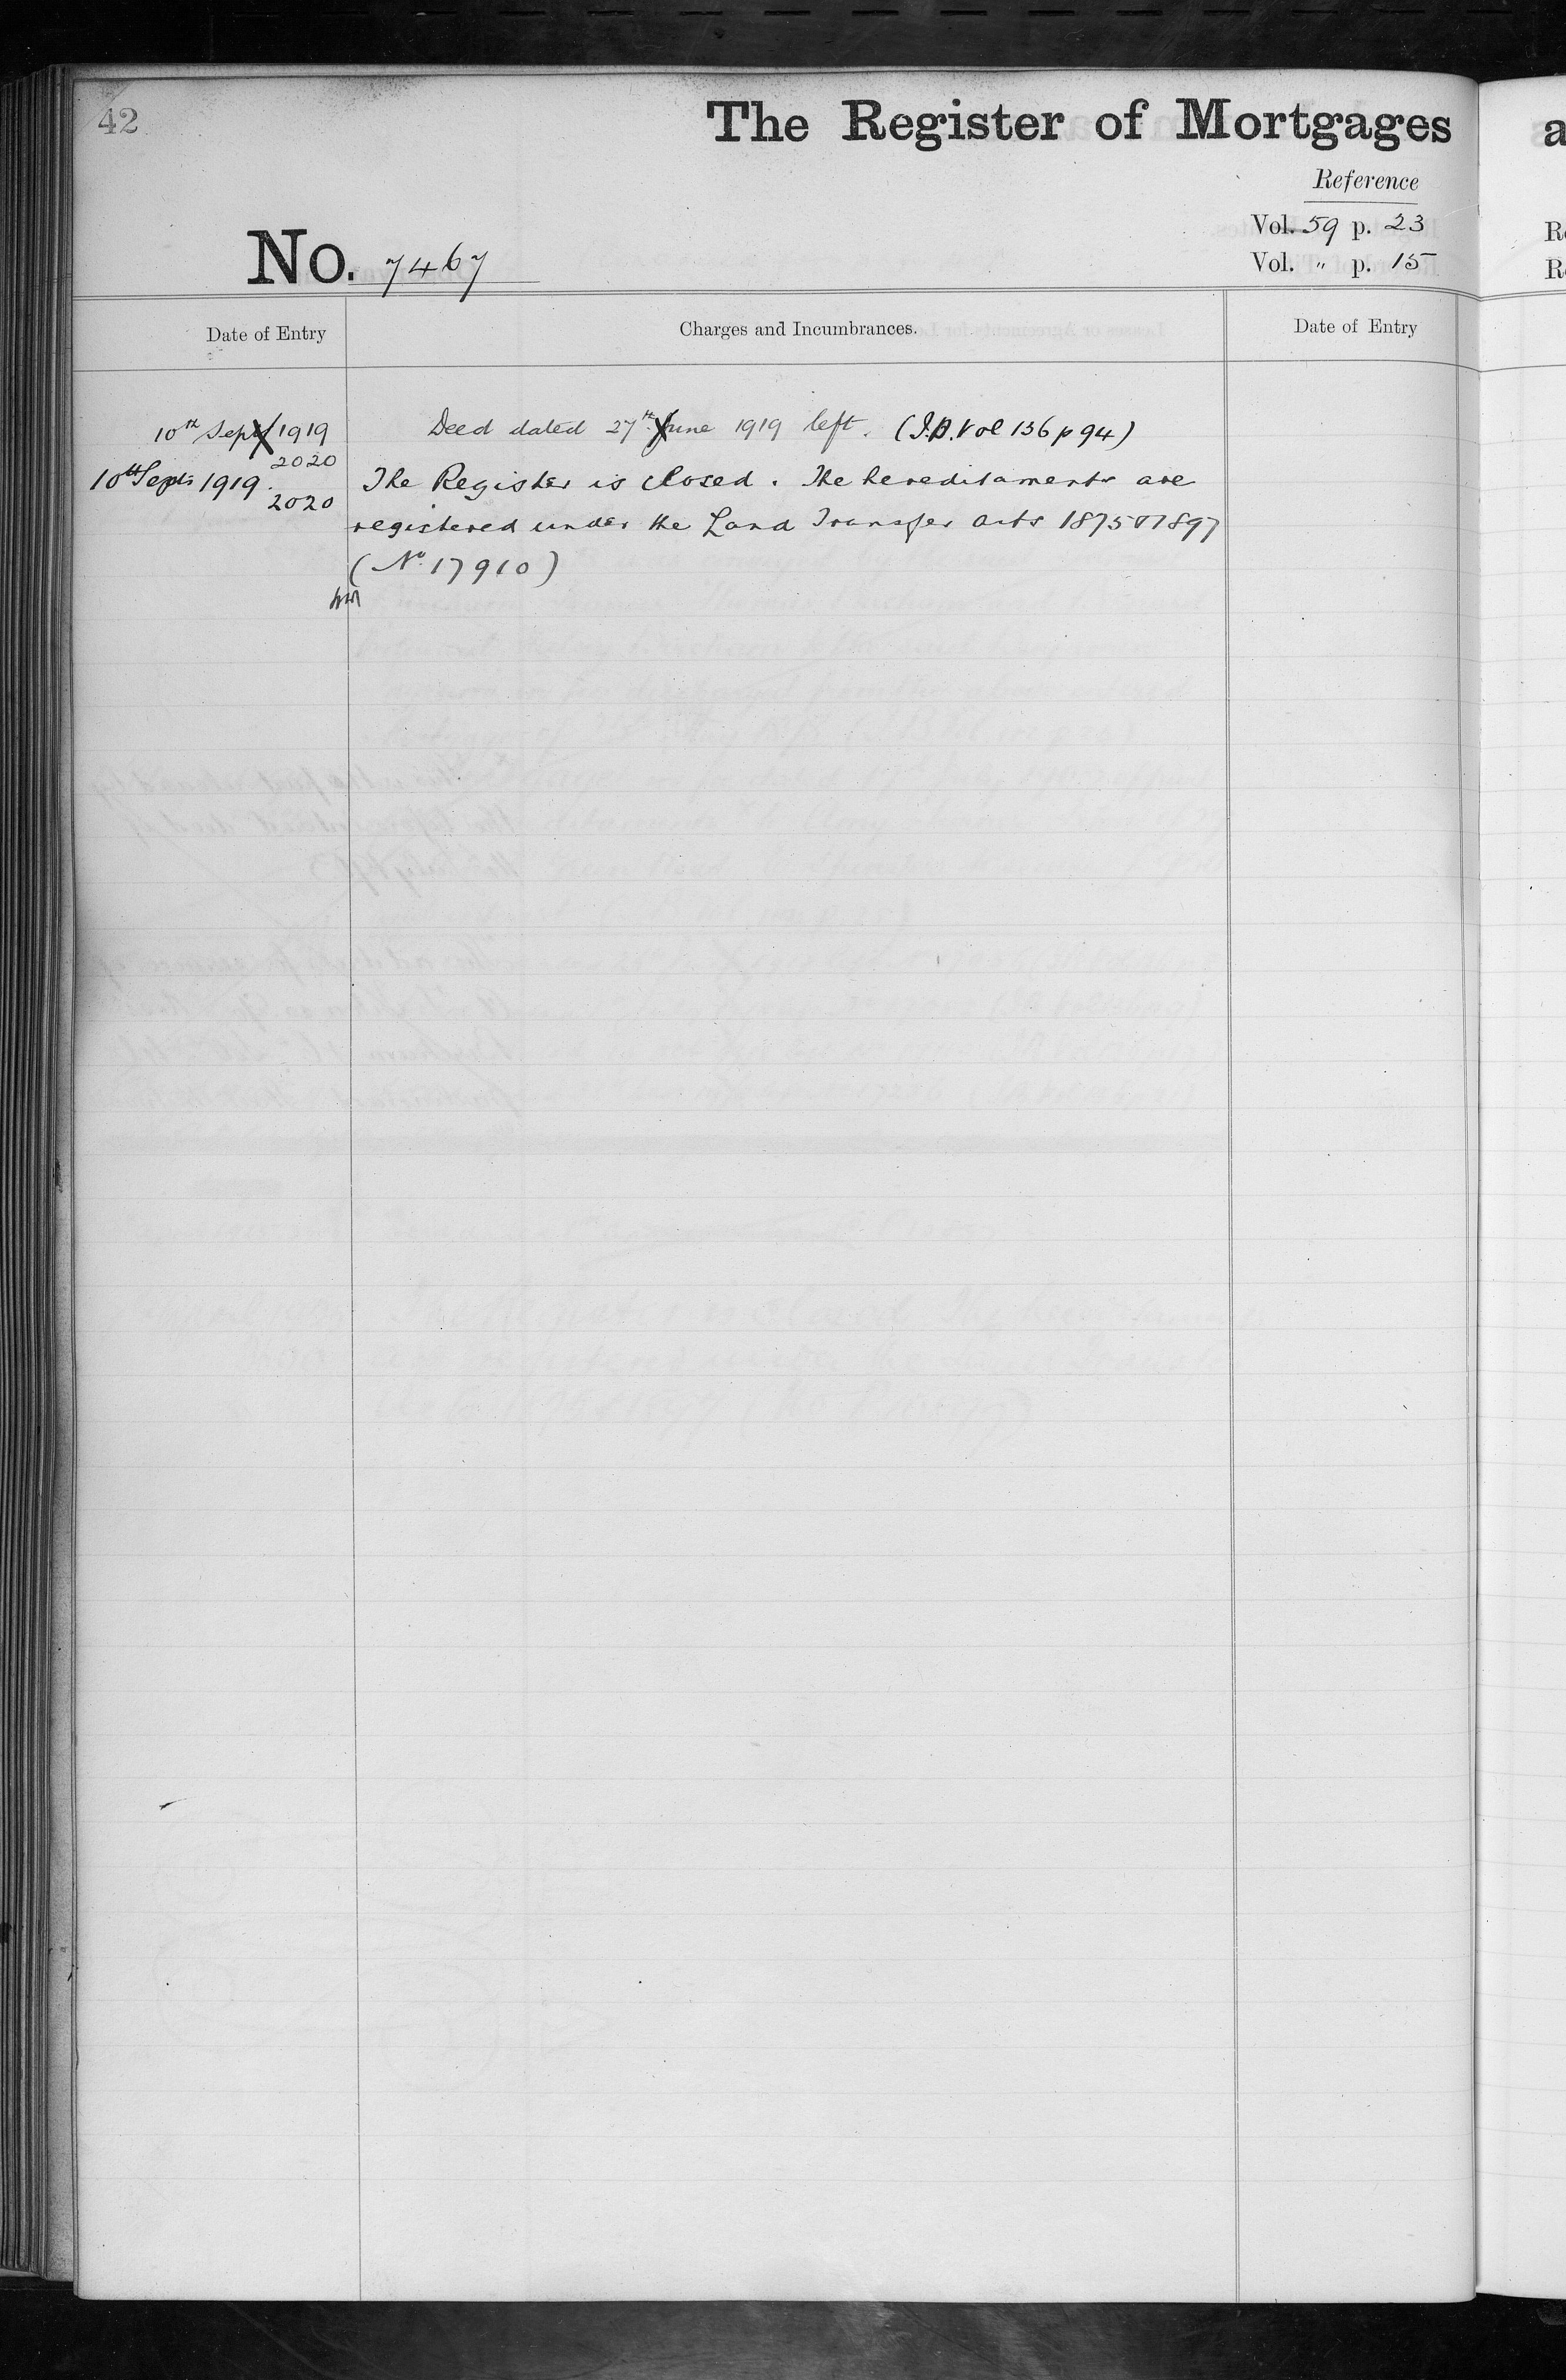 42
The Register of Mortgages
Reference
Vol. 59 p. 23
No. 7467
Vol. " p. 15
Date of Entry
Charges and Incumbrances.
Date of Entry
10th Sept 1919
2020
Deed dated 27th June 1919 left. (I.B. Vol 136 p 94)
10th Sept. 1919.
2020
The Register is closed. The hereditaments are
registered under the Land Transfer Acts 1875 & 1897
(No. 17910)